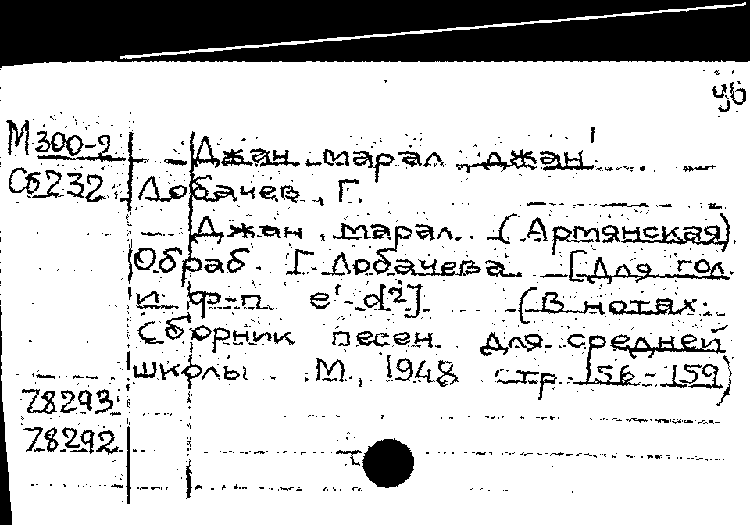 уб
М300-2 Джан марал, джан!
Сб232 Лобачев, Г.
Джан, марал. (Армянская)
Обраб. Г. Лобачева. [Для гол.
и ф-п e'-d[²]. (В нотах:
Сборник песен для средней
школы. М., 1948 стр. 156-159)
78293
78292